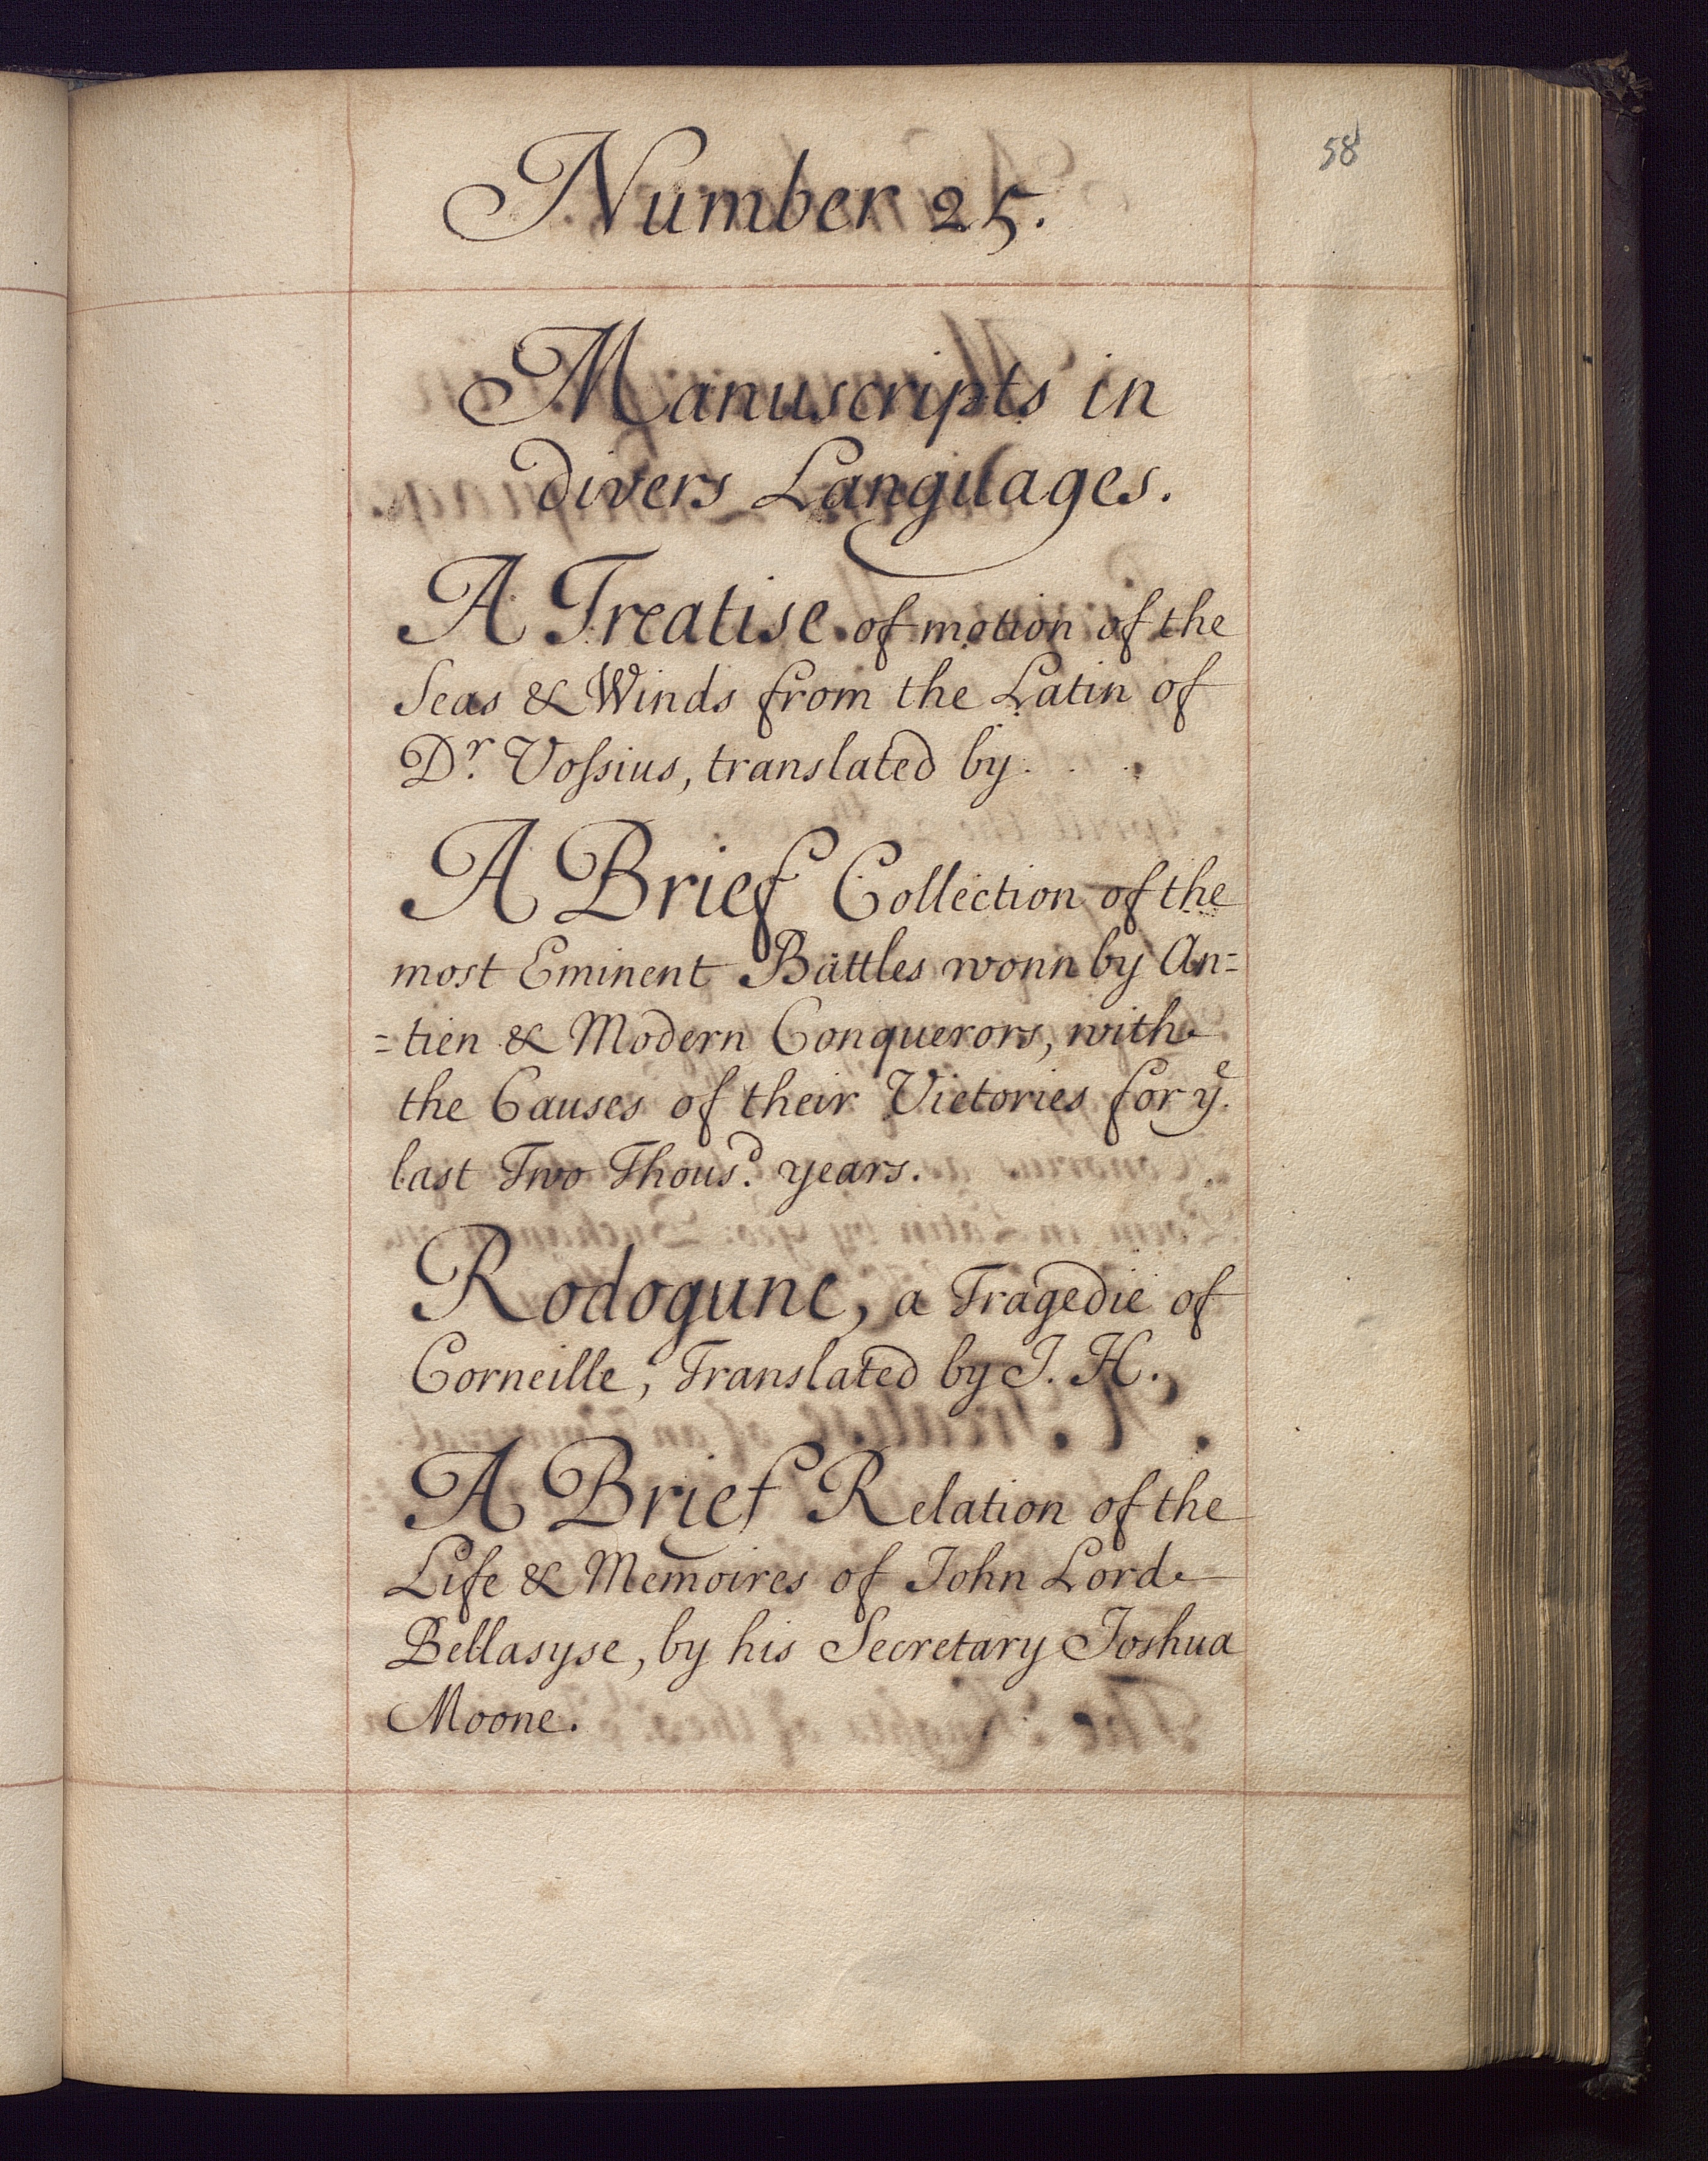 58
Number 25.
Manuscripts in
divers Languages.
A Treatise of motion of the
Seas & Winds from the Latin of
Dr. Voſsius, translated by . . .
A Brief Collection of the
most Eminent Battles wonn by An=
=tien & Modern Conquerors, with
the Causes of their Victories for ye.
last Two Thousd. years.
Rodogune, a Tragedie of
Corneille, Translated by J. H.
A Brief Relation of the
Life & Memoires of John Lord
Bellasyse, by his Secretary Joshua
Moone.